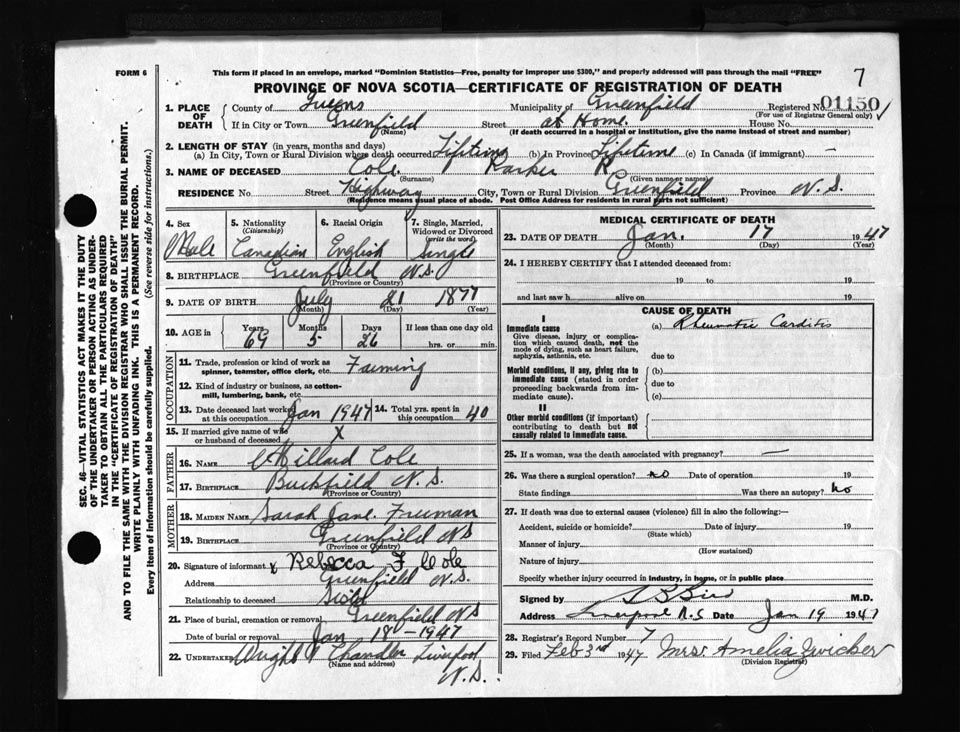 7
FORM 6
This form if placed in an envelope, marked "Dominion Statistics—Free, penalty for improper use $300," and properly addressed will pass through the mail "FREE"
PROVINCE OF NOVA SCOTIA—CERTIFICATE OF REGISTRATION OF DEATH
1. PLACE OF DEATH County of Queens Municipality of Greenfield Registered No. 01150
(For use of Registrar General only)
If in City or Town Greenfield Street at Home. House No.
(Name) (If death occurred in a hospital or institution, give the name instead of street and number)
2. LENGTH OF STAY (in years, months and days)
(a) In City, Town or Rural Division where death occurred Lifetime (b) In Province Lifetime (c) In Canada (if immigrant) —
3. NAME OF DECEASED Cole Parker R.
(Surname) (Given name or names)
RESIDENCE No. Street Highway City, Town or Rural Division Greenfield Province N.S.
(Residence means usual place of abode. Post Office Address for residents in rural parts not sufficient)
4. Sex Male
5. Nationality (Citizenship) Canadian
6. Racial Origin English
7. Single, Married, Widowed or Divorced (write the word) Single
8. BIRTHPLACE Greenfield N.S.
(Province or Country)
9. DATE OF BIRTH July 21 1877
(Month) (Day) (Year)
10. AGE in Years 69 Months 5 Days 26 If less than one day old hrs. or min.
OCCUPATION
11. Trade, profession or kind of work as spinner, teamster, office clerk, etc. Farming
12. Kind of industry or business, as cotton-mill, lumbering, bank, etc.
13. Date deceased last worked at this occupation Jan 1947
14. Total yrs. spent in this occupation 40
15. If married give name of wife or husband of deceased X
FATHER
16. NAME Willard Cole
17. BIRTHPLACE Buckfield N.S.
(Province or Country)
MOTHER
18. MAIDEN NAME Sarah Jane. Freeman
19. BIRTHPLACE Greenfield NS
(Province or Country)
20. Signature of informant x Rebecca F Cole
Address Greenfield N.S.
Relationship to deceased
21. Place of burial, cremation or removal Greenfield NS
Date of burial or removal Jan 18-1947
22. UNDERTAKER Chandler Liverpool
(Name and address) N.S.
MEDICAL CERTIFICATE OF DEATH
23. DATE OF DEATH Jan. 17 1947
(Month) (Day) (Year)
24. I HEREBY CERTIFY that I attended deceased from:
19 to 19
and last saw h alive on 19
CAUSE OF DEATH
I
Immediate cause (a) Rheumatic Carditis
Give disease, injury or complication which caused death, not the mode of dying, such as heart failure, asphyxia, asthenia, etc. due to
Morbid conditions, if any, giving rise to immediate cause (stated in order proceeding backwards from immediate cause). (b)
due to
(c)
II
Other morbid conditions (if important) contributing to death but not causally related to immediate cause.
25. If a woman, was the death associated with pregnancy? —
26. Was there a surgical operation? no Date of operation 19
State findings Was there an autopsy? no
27. If death was due to external causes (violence) fill in also the following:—
Accident, suicide or homicide? Date of injury 19
(State which)
Manner of injury
(How sustained)
Nature of injury
Specify whether injury occurred in industry, in home, or in public place
Signed by M.D.
Address Liverpool N.S Date Jan 19 1947
28. Registrar's Record Number 7
29. Filed Feb 3rd 1947 Mrs. Amelia Zwicker
(Division Registrar)
SEC. 46—VITAL STATISTICS ACT MAKES IT THE DUTY
OF THE UNDERTAKER OR PERSON ACTING AS UNDER-
TAKER TO OBTAIN ALL THE PARTICULARS REQUIRED
IN THE "CERTIFICATE OF REGISTRATION OF DEATH"
AND TO FILE THE SAME WITH THE DIVISION REGISTRAR WHO SHALL ISSUE THE BURIAL PERMIT.
WRITE PLAINLY WITH UNFADING INK. THIS IS A PERMANENT RECORD.
Every item of information should be carefully supplied. (See reverse side for instructions.)